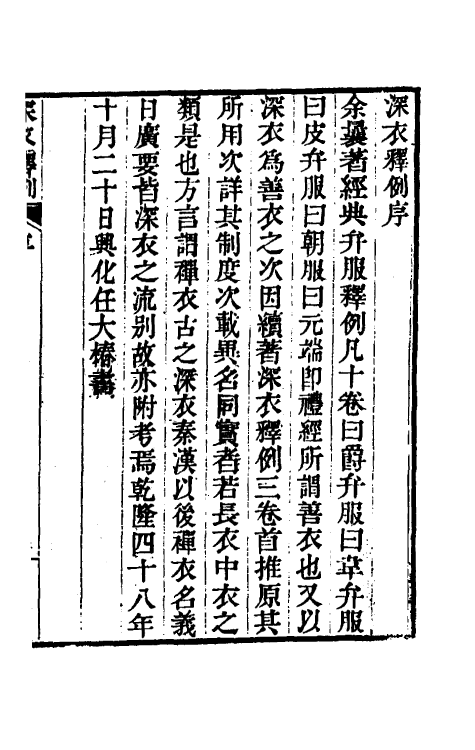 深衣釋例序
余曩著經典弁服釋例凡十卷曰爵弁服曰韋弁服
曰皮弁服曰朝服曰元端卽禮經所謂善衣也又以
深衣為善衣之次因續著深衣釋例三卷首推原其
所用次詳其制度次載異名同實者若長衣中衣之
類是也方言謂襌衣古之深衣秦漢以後襌衣名義
日廣要皆深衣之流别故亦附考焉乾隆四十八年
十月二十日興化任大椿書
深衣釋例